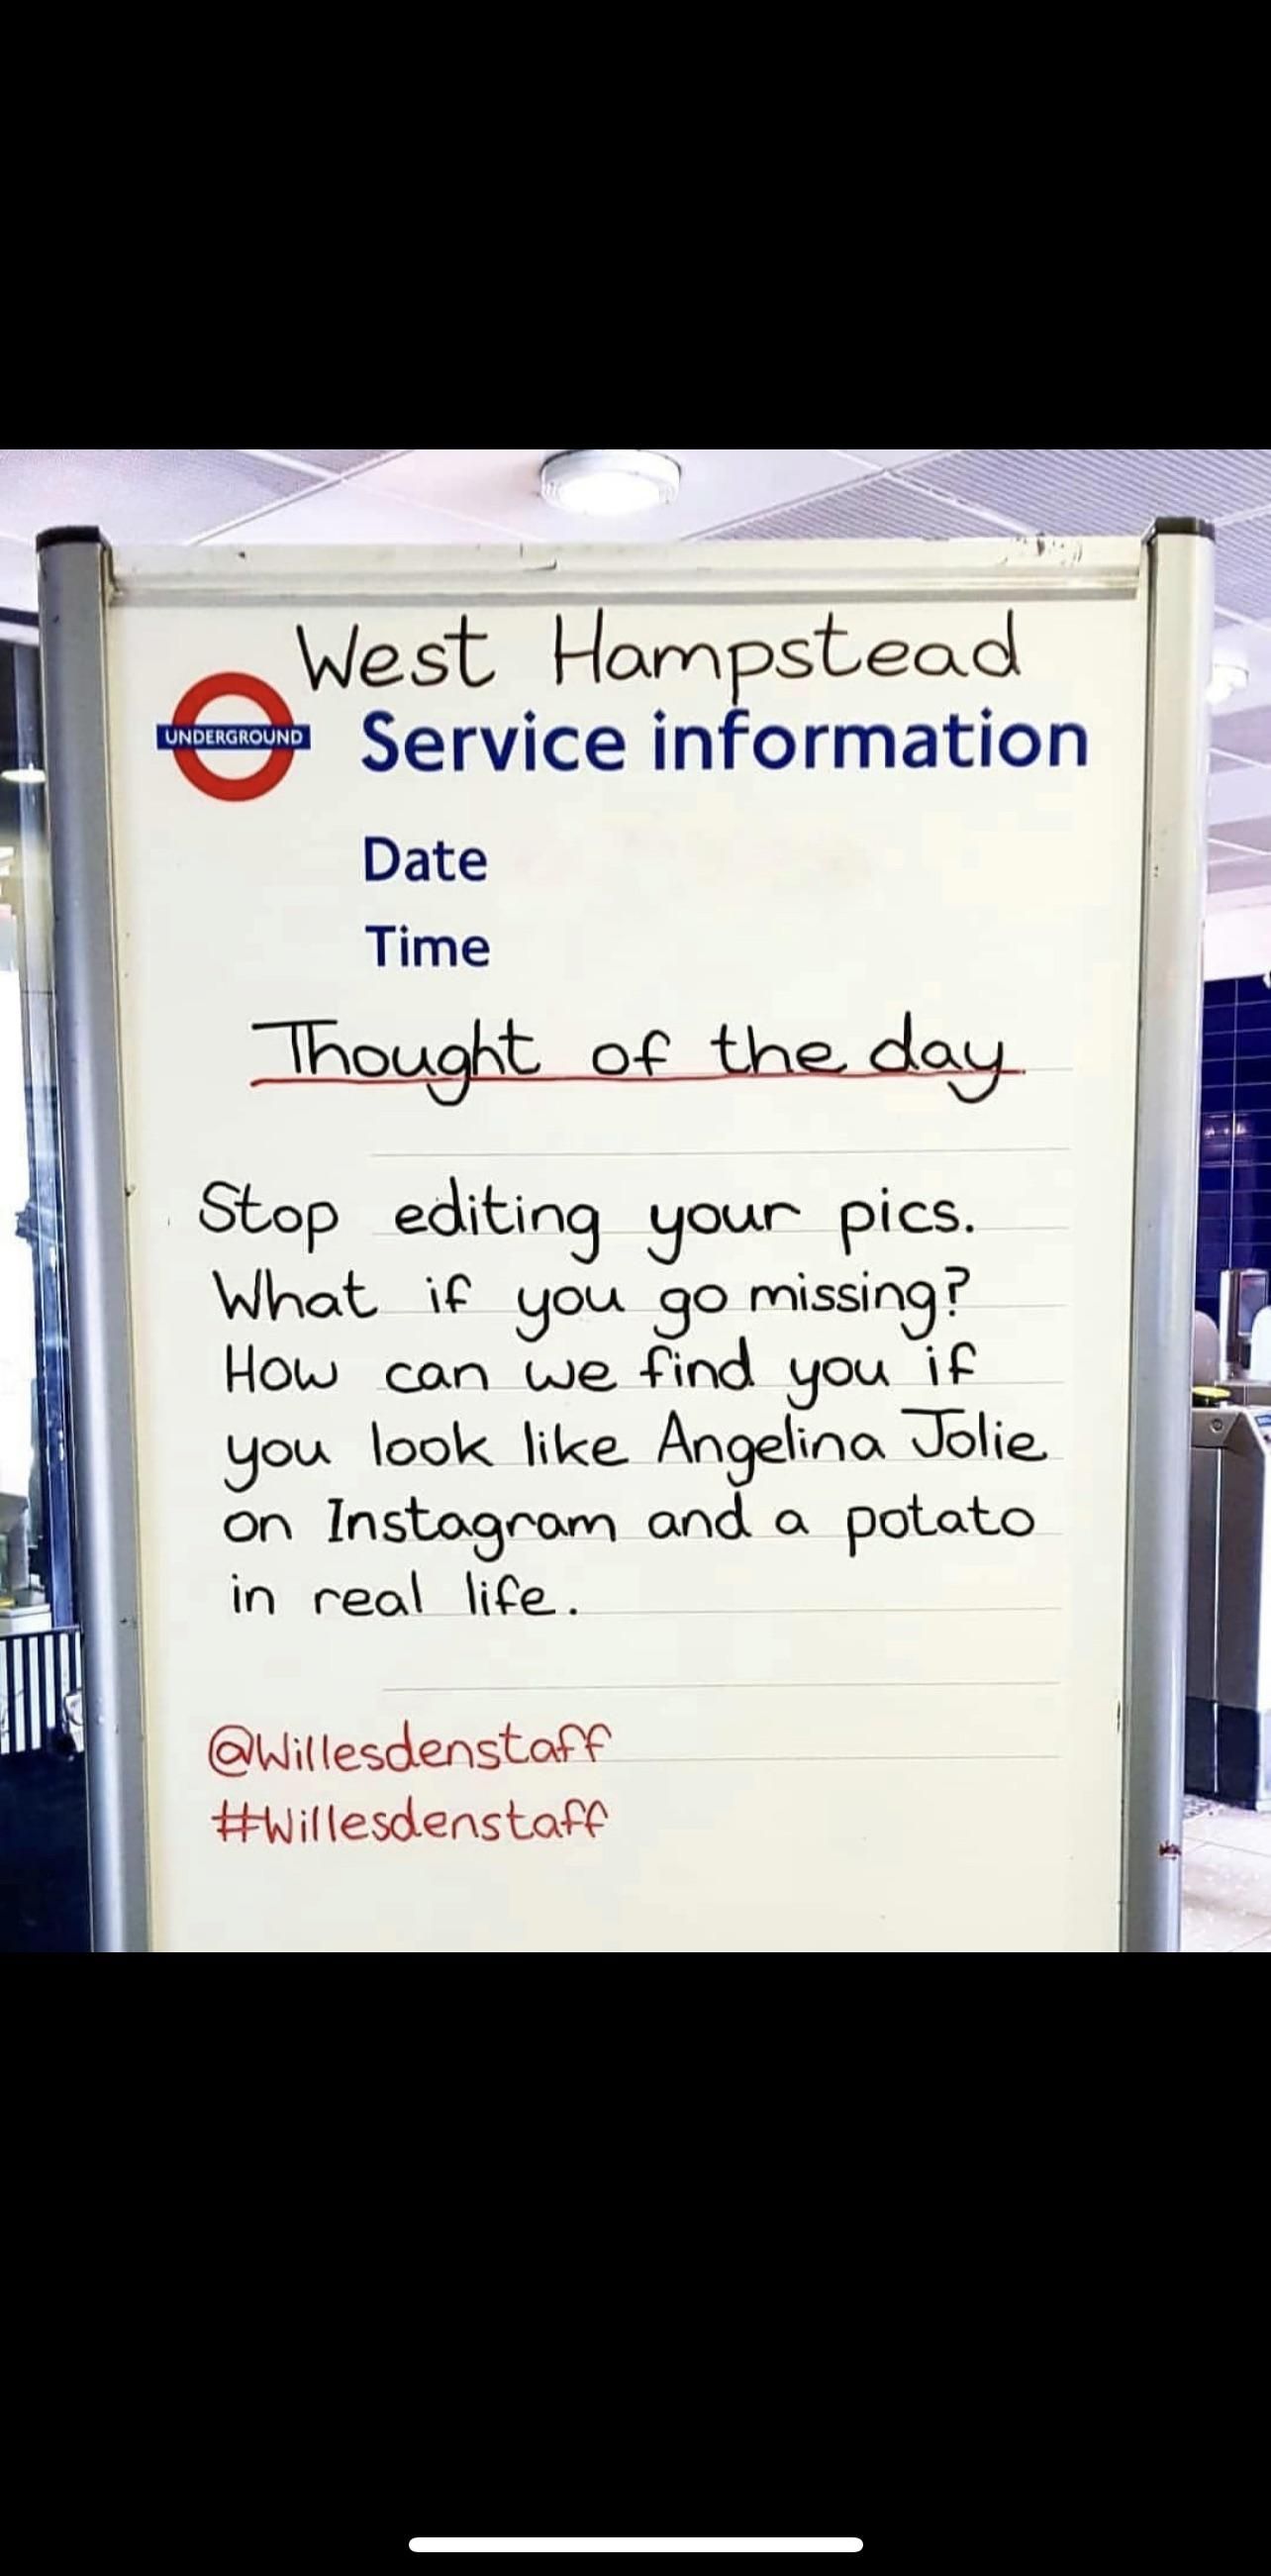 West Hampstead
UNDERGROUND
Service information
Date
Time
Thought of the day
Stop editing your pics.
What if you go missing?
How can we find you if
you look like Angelina Jolie
on Instagram and a potato
in real life.
@Willesdenstaff
#Willesdenstaff